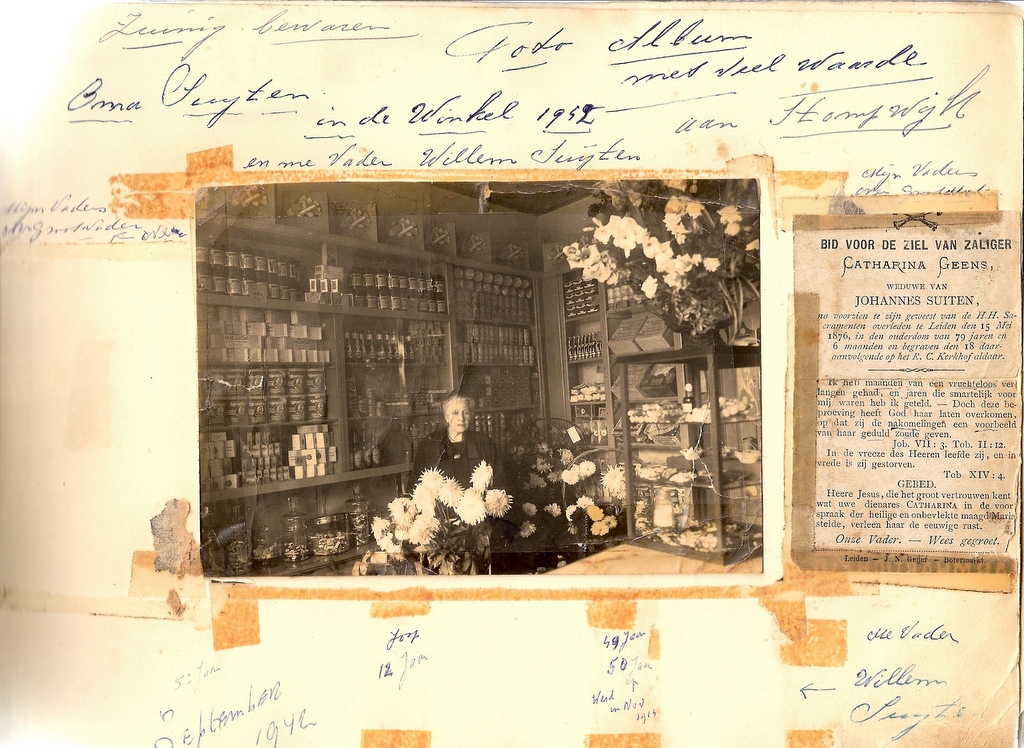 Zuinig bewaren
Foto Album
met veel waarde
Oma Suyten
in de Winkel 1942
aan Stompwijk
en me Vader Willem Suÿten
Mijn Vaders
Mijn Vaders
BID VOOR DE ZIEL VAN ZALIGER
CATHARINA GEENS,
WEDUWE VAN
JOHANNES SUITEN,
na voorzien te zijn geweest van de H.H. Sa-
cramenten overleden te Leiden den 15 Mei
1876, in den ouderdom van 79 jaren en
6 maanden en begraven den 18 daar-
aanvolgende op het R. C. Kerkhof aldaar.
Ik heb maanden van een vruchteloos ver
langen gehad, en jaren die smartelijk voor
mij waren heb ik geteld. — Doch deze be-
proeving heeft God haar laten overkomen,
op dat zij de nakomelingen een voorbeeld
van haar geduld zoude geven.
Job. VII : 3. Tob. II : 12.
In de vreeze des Heeren leefde zij, en in
vrede is zij gestorven.
Tob XIV : 4.
GEBED.
Heere Jesus, die het groot vertrouwen kent
wat uwe dienares CATHARINA in de voor
spraak der heilige en onbevlekte maagd Maria
stelde, verleen haar de eeuwige rust.
Onze Vader. — Wees gegroet.
Leiden — J. N. Geijer — Botermarkt.
Joop
12 Jaar
49 Jaar
50 Jaar
Werd
in Nov
52 Jaar
September
1942
Me Vader
← Willem
Suyten